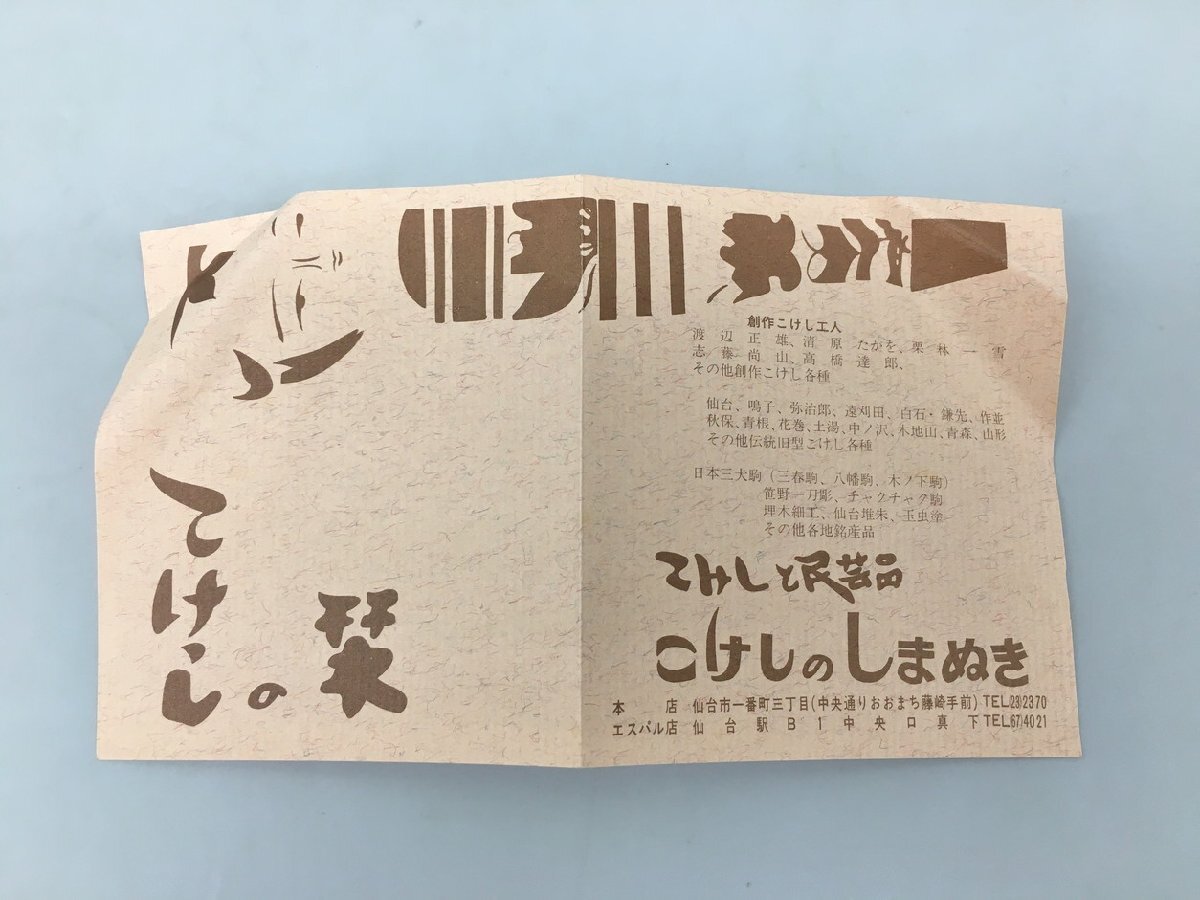 こけしの栞
創作こけし工人
渡辺正雄、清原たかを、栗林一雪
志藤尚山、高橋達郎、
その他創作こけし各種
仙台、鳴子、弥治郎、遠刈田、白石・鎌先、作並
秋保、青根、花巻、土湯、中ノ沢、木地山、青森、山形
その他伝統旧型こけし各種
日本三大駒（三春駒、八幡駒、木ノ下駒）
笹野一刀彫、チャグチャグ駒
埋木細工、仙台堆朱、玉虫塗
その他各地銘産品
こけしと民芸品
こけしのしまぬき
本店 仙台市一番町三丁目(中央通りおおまち藤崎手前) TEL(23)2370
エスパル店 仙台駅B1中央口真下 TEL(67)4021